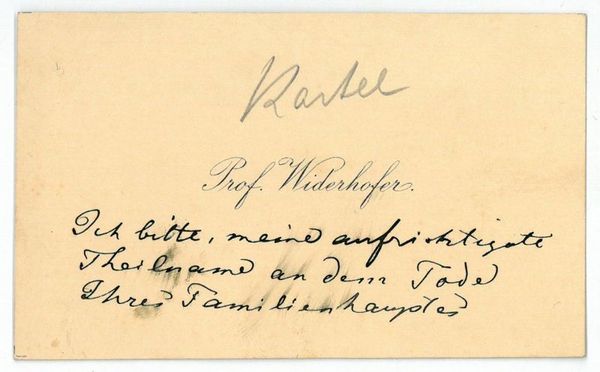 Kartel
Prof. Widerhofer.
Ich bitte, meine aufrichtigste
Theilname an dem Tode
Ihres Familienhauptes